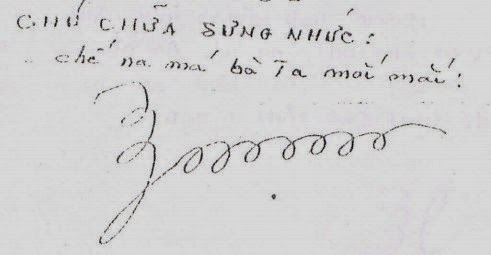 CHÚ CHỮA SƯNG NHỨC:
chế na má bà Ta mới mới: